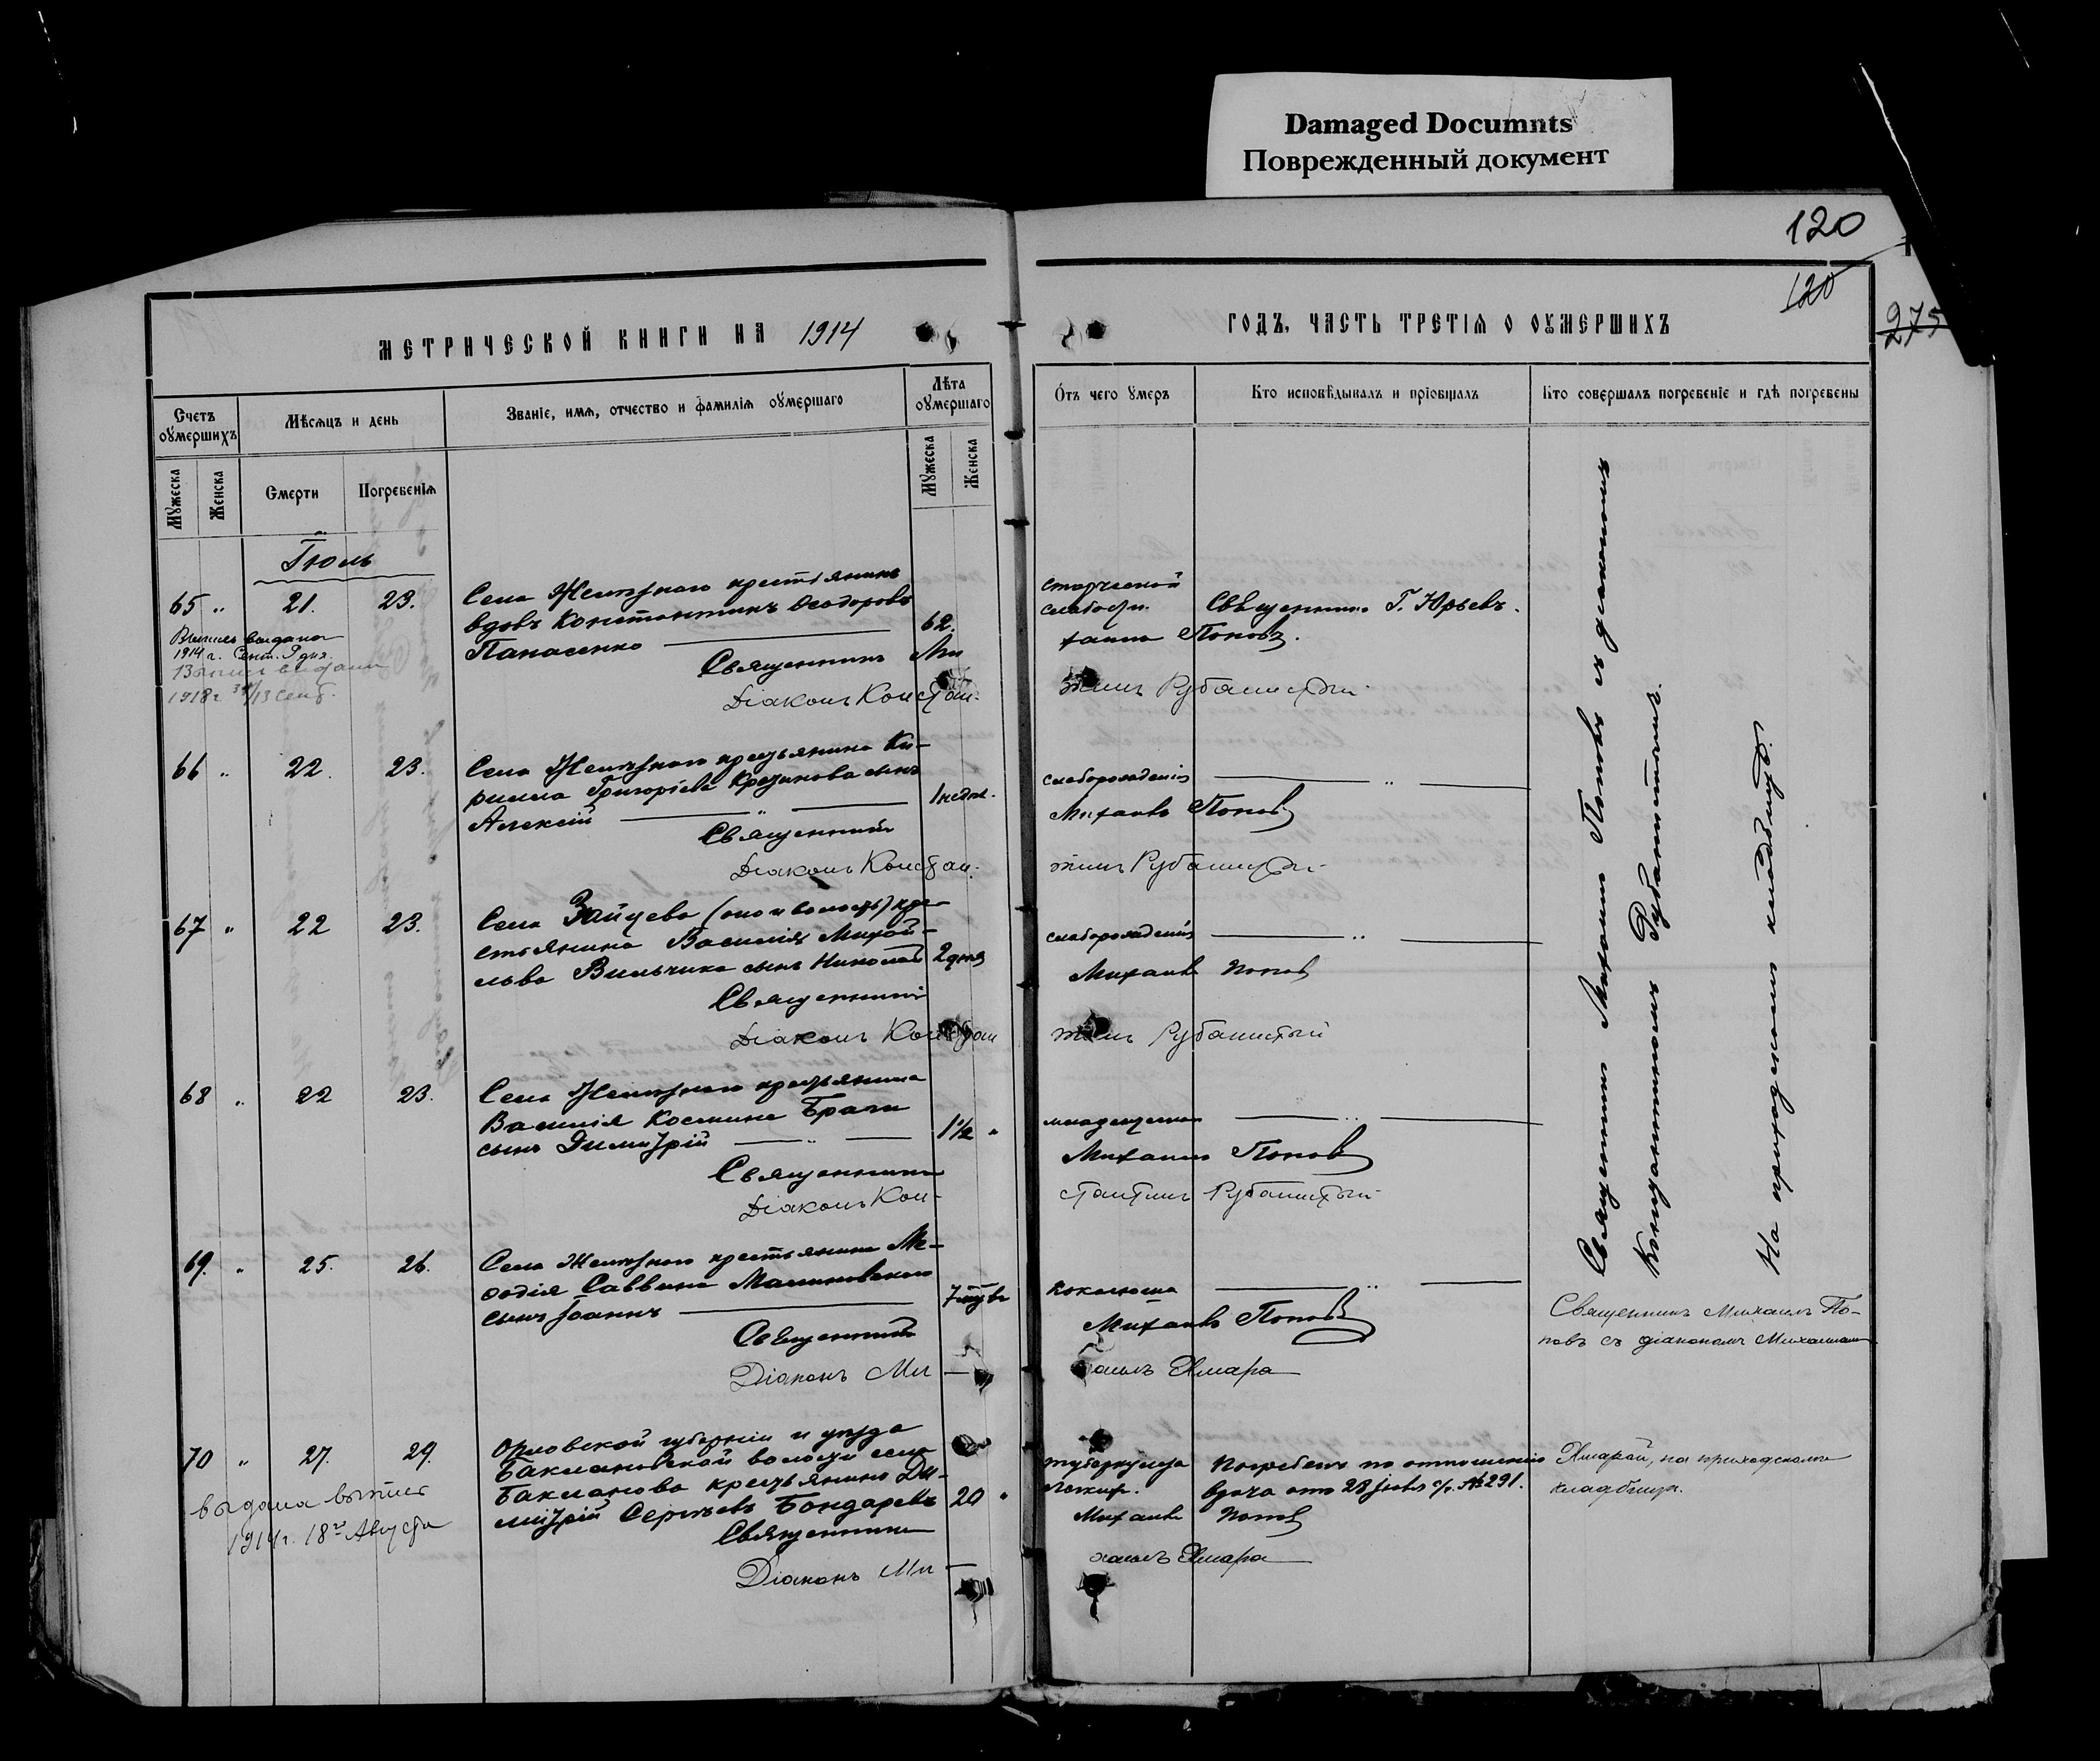 Damaged Documnts
Поврежденный документ
120
120
275
МЕТРИЧЕСКОЙ КНИГИ НА 1914
ГОДЪ, ЧАСТЬ ТРЕТІЯ О ОУМЕРШИХЪ
Счетъ оумершихъ
Мѣсяцъ и день
Званіе, имя, отчество и фамилія оумершаго
Лѣта оумершаго
Отъ чего умеръ
Кто исповѣдывалъ и пріобщалъ
Кто совершалъ погребеніе и гдѣ погребены
Мужеска
Женска
Смерти
Погребенія
Мужеска
Женска
Іюль
65 " 21. 23.
Села крестьянинъ
вдовъ Константинъ Ѳеодоровъ
Панасенко
62.
старческой
слабости.
Священникъ Г. Юрьевъ.
Выпись выдана
1914 г. Сент. 9 дня.
Выпись выдана
1918 г 31/13 сент.
Священникъ Ми
хаилъ Поповъ.
Діаконъ Констан-
тинъ Рубашистый
66 " 22. 23.
Села крестьянина Ки-
рилла Григоріева сынъ
Алексій
1 недѣл.
слаборожденія
Священникъ
Михаилъ Поповъ
Діаконъ Констан-
тинъ Рубашистый
67 " 22 23.
Села Зайцева (оно и волость) кре-
стьянина Василія Михай-
лова Вильчика сынъ Николай
2 дня
слаборожденія
Священникъ
Михаилъ Поповъ
Діаконъ Констан
тинъ Рубашистый
68 " 22 23.
Села крестьянина
Василія Космина
сынъ Димитрій
1½ "
Священникъ
Михаилъ Поповъ
Діаконъ Кон-
стантинъ Рубашистый
69. " 25. 26.
Села крестьянина Ме-
ѳодія Саввина Малиновскаго
сынъ Іоаннъ
7
коклюша
Священникъ
Михаилъ Поповъ
Діаконъ Ми-
хаилъ Хмара
70 " 27. 29.
Орловской губерніи и уѣзда
Баклановской волости села
Бакланова крестьянинъ Ди-
митрій Сергѣевъ Бондаревъ
20 "
туберкулеза
легких.
Погребенъ по отношенію
врача отъ 28 іюля с/г. №291.
выдана выпись
1914 г. 18го Августа
Священникъ
Михаилъ Поповъ
Діаконъ Ми-
хаилъ Хмара
Священникъ Михаилъ Поповъ съ діакономъ
Константиномъ Рубашистымъ.
На приходскомъ кладбищѣ.
Священникъ Михаилъ По-
повъ съ діакономъ Михаиломъ
Хмарой, на приходскомъ
кладбищѣ.